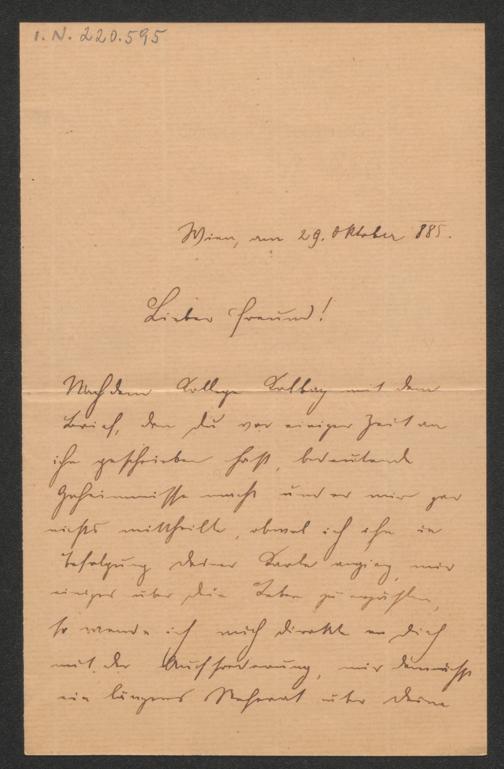 I. N. 220.595
Wien, am 29. Oktober 885.
Lieber Freund!
Nachdem College Kolbay mit dem
Brief, den Du vor einiger Zeit an
ihn geschrieben hast, bedeutende
Geheimnisse macht und er mir gar
nichts mittheilt, obwol ich ihn in
Befolgung Deiner Karte anging, mir
einiges über Dein Leben zu erzählen,
so wende ich mich direkt an Dich
mit der Aufforderung, mir demnächst
ein längeres Referat über Deine